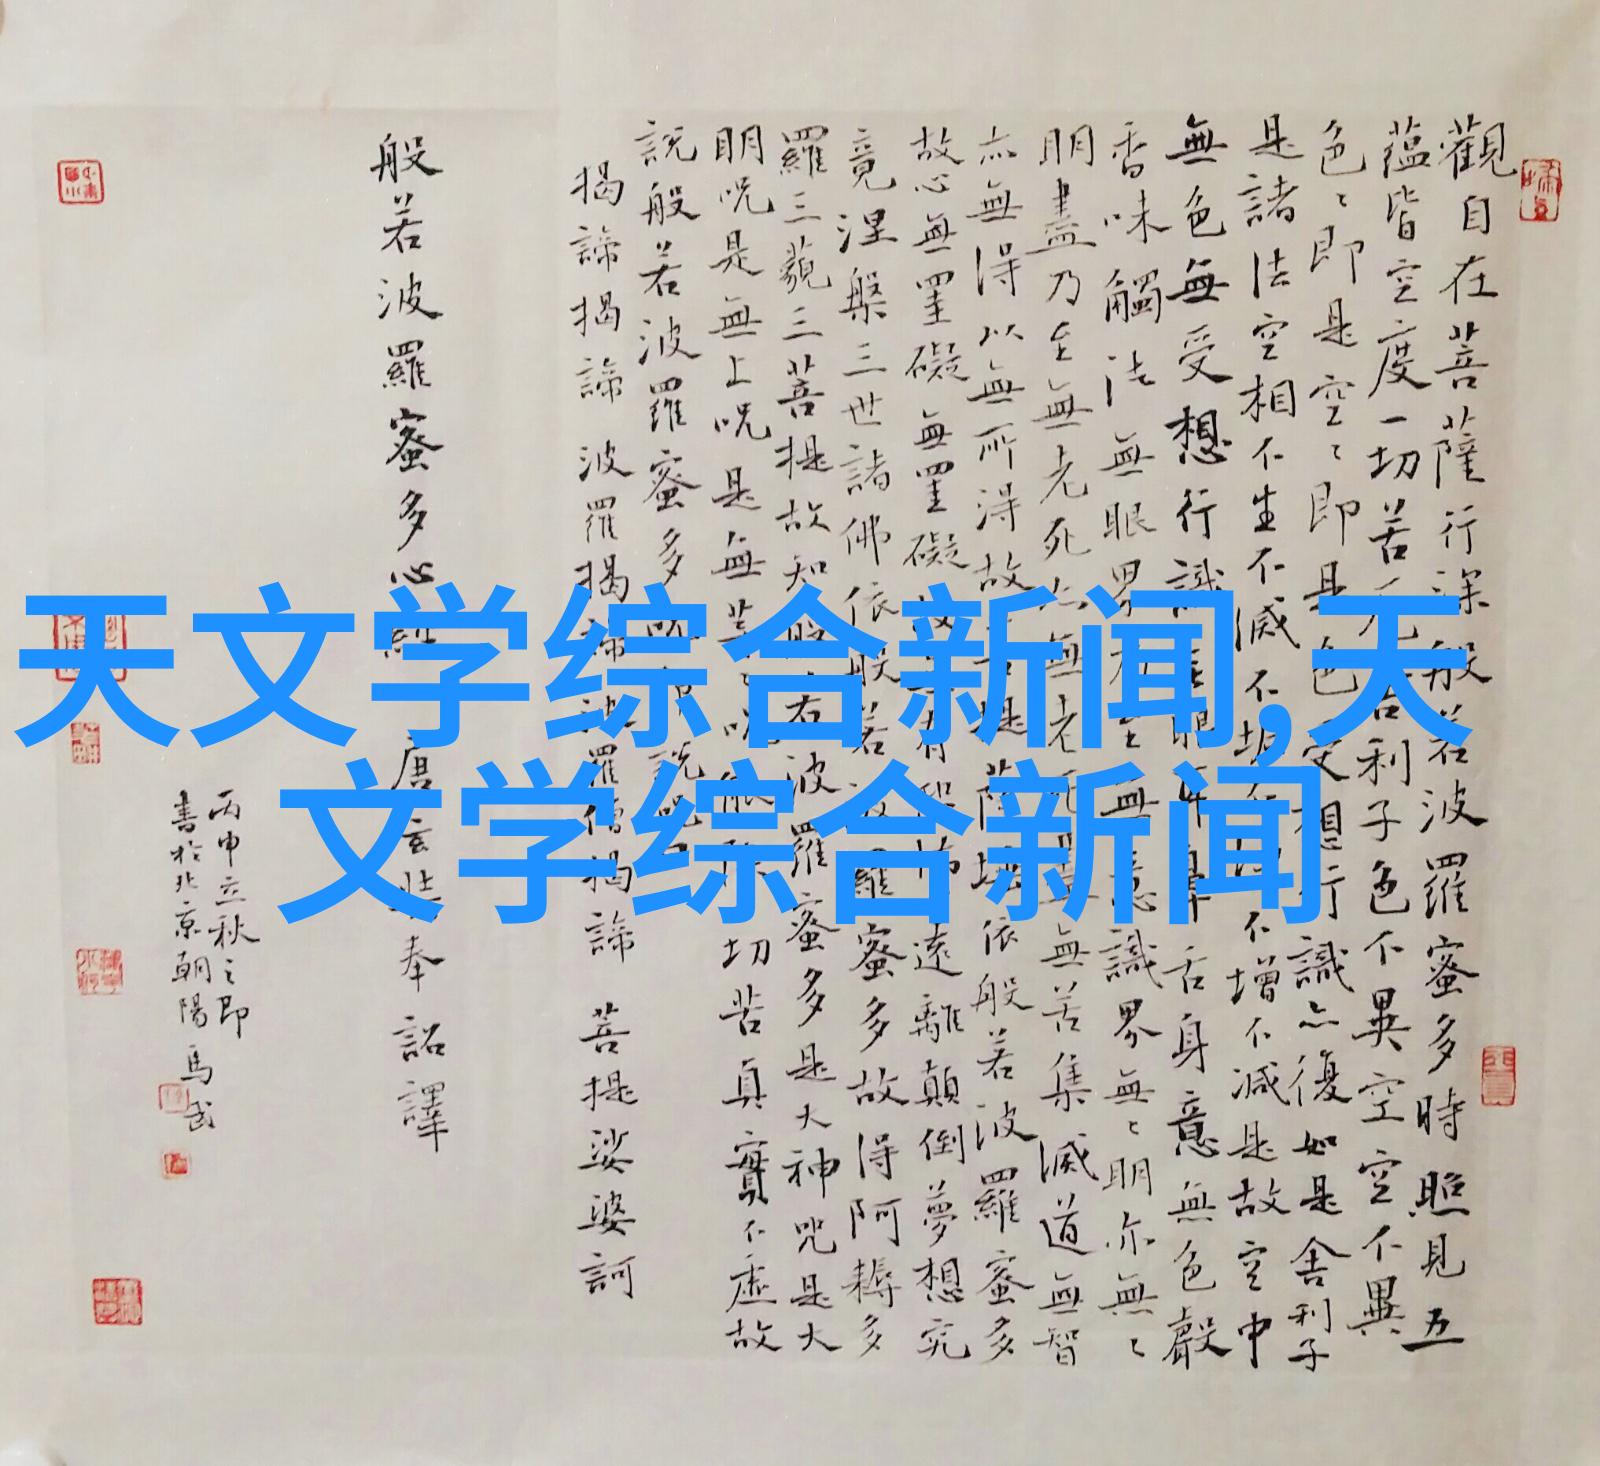 天文学综合新闻,天
文学综合新闻
觀自在菩薩行深般若波羅蜜多時照見五
蘊皆空度一切苦厄舍利子色不異空空不異
色〻即是空〻即是色受想行識亦復如是舍利子
是諸法空相不生不滅不垢不淨不增不減是故空中
無色無受想行識無眼耳鼻舌身意無色聲
香味觸法無眼界乃至無意識界無〻明亦無〻
明盡乃至無老死亦無老死盡無苦集滅道無智
亦無得以無所得故菩提薩埵依般若波羅蜜多
故心無罣礙無罣礙故無有恐怖遠離顛倒夢想究
竟涅槃三世諸佛依般若波羅蜜多故得阿耨多
羅三藐三菩提故知般若波羅蜜多是大神咒是大
明咒是無上咒是無等〻咒能除一切苦真實不虛故
說般若波羅蜜多咒即說咒曰
揭諦揭諦 波羅揭諦波羅僧揭諦 菩提娑婆訶
般若波羅蜜多心經 唐玄奘奉詔譯
丙申立秋之即
書於北京朝陽 馬武